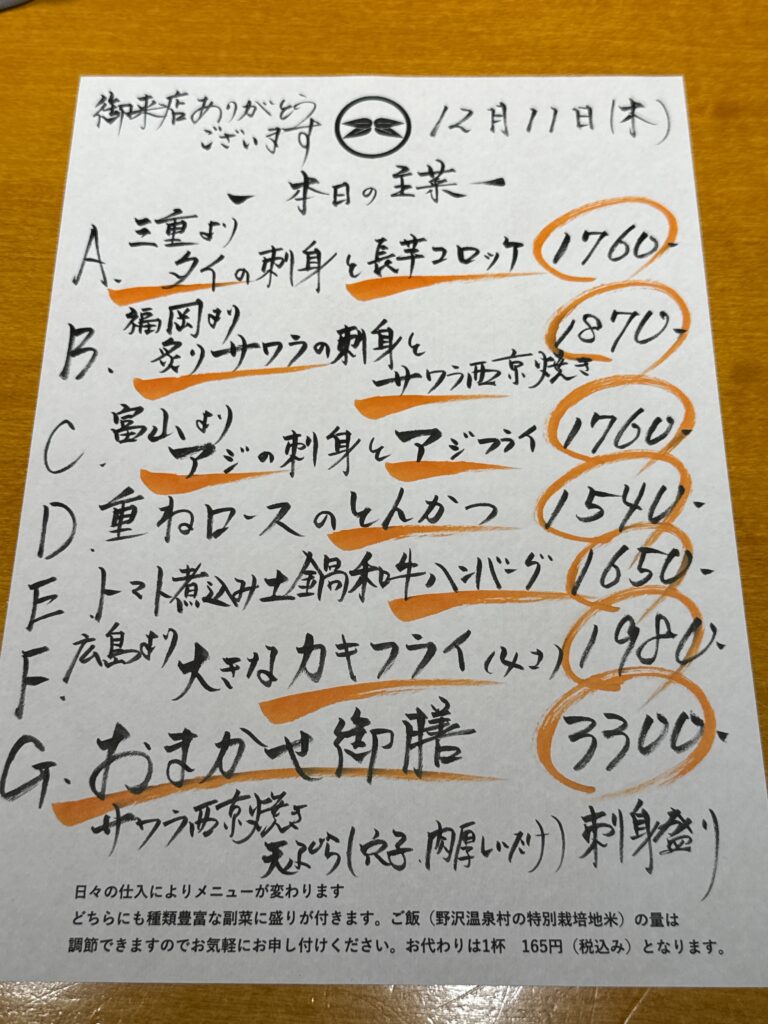 御来店ありがとう
ございます
12月11日(木)
ー本日の主菜ー
A. 三重より
タイの刺身と長芋コロッケ 1760-
B. 福岡より
炙りサワラの刺身と 1870-
サワラ西京焼き
C. 富山より
アジの刺身とアジフライ 1760-
D. 重ねロースのとんかつ 1540-
E トマト煮込み土鍋和牛ハンバーグ 1650-
F. 広島より 大きなカキフライ(4コ) 1980-
G. おまかせ御膳 3300-
サワラ西京焼き
天ぷら(穴子、肉厚しいたけ) 刺身盛り
日々の仕入によりメニューが変わります
どちらにも種類豊富な副菜に盛りが付きます。ご飯（野沢温泉村の特別栽培地米）の量は
調節できますのでお気軽にお申し付けください。お代わりは1杯　165円（税込み）となります。